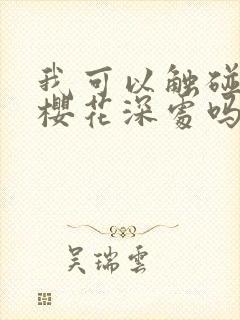 我可以触碰
樱花深处吗
吴瑞云